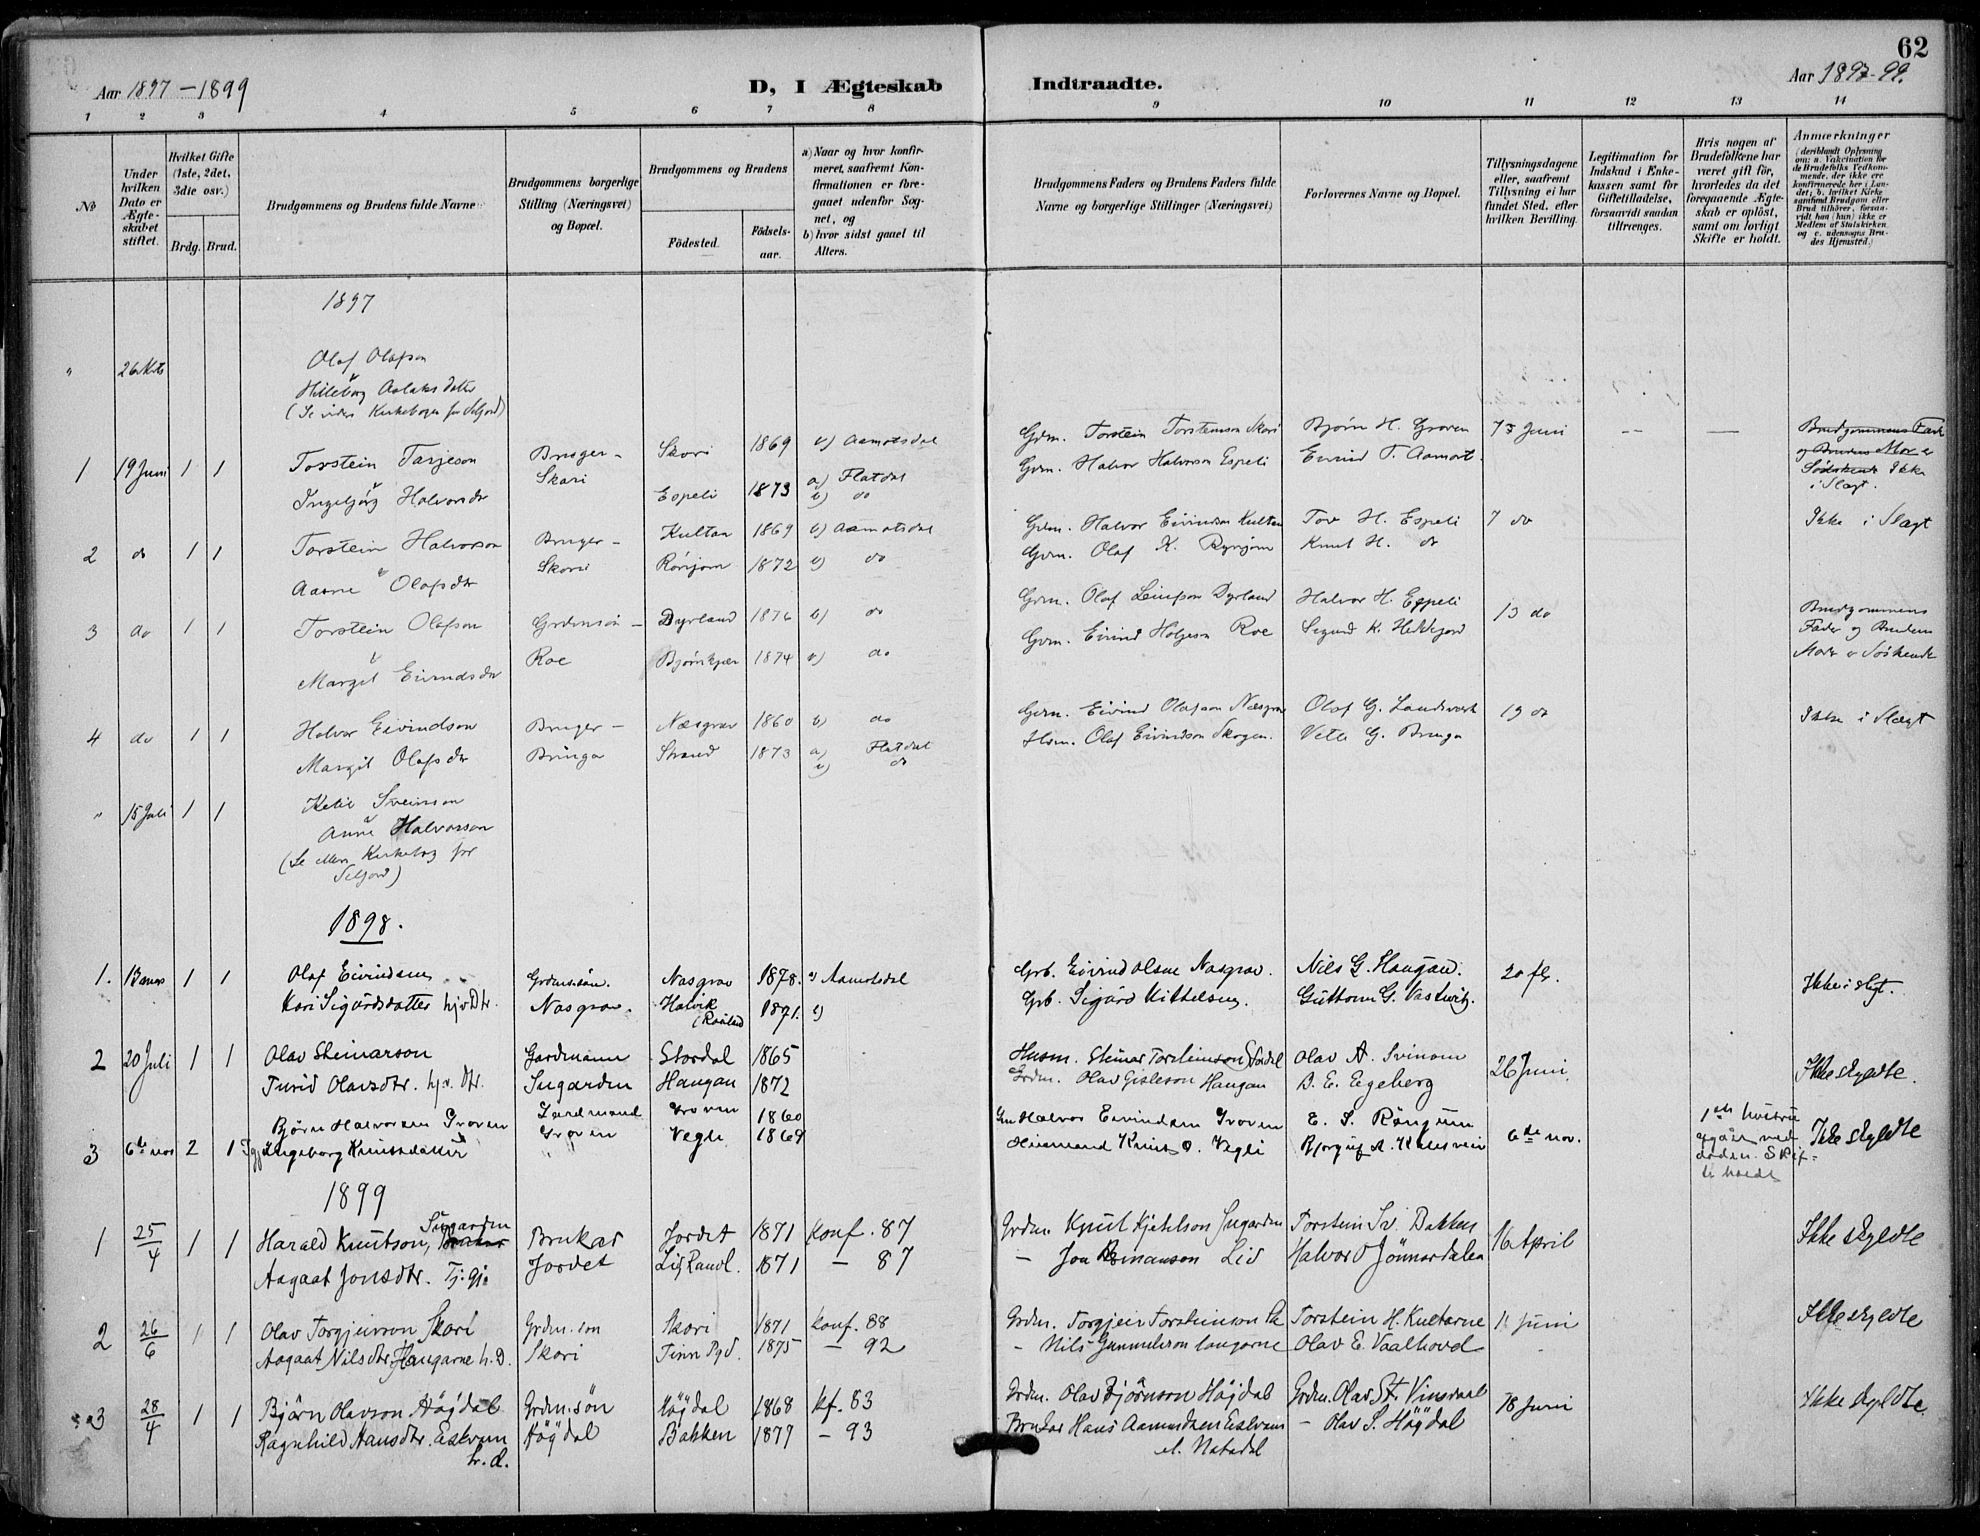 62
Aar 1897-1899
D, I Ægteskab
Indtraadte.
Aar 1897-99.
1 2 3 4 5 6 7 8 9 10 11 12 13 14
No
Under hvilken Dato er Ægteskabet stiftet.
Hvilket Gifte (1ste, 2det, 3die osv.)
Brdg. Brud.
Brudgommens og Brudens fulde Navne
Brudgommens borgerlige Stilling (Næringsvei) og Bopæl.
Brudgommens og Brudens
Födested.
Födselsaar.
a) Naar og hvor konfirmeret, saafremt Konfirmationen er foregaaet udenfor Sognet, og
b) hvor sidst gaaet til Alters.
Brudgommens Faders og Brudens Faders fulde Navne og borgerlige Stillinger (Næringsvei)
Forlovernes Navne og Bopæl.
Tillysningsdagene eller, saafremt Tillysning ei har fundet Sted, efter hvilken Bevilling.
Legitimation for Indskud i Enkekassen samt for Giftetilladelse, forsaavidt saadan tiltrænges.
Hvis nogen af Brudefolkene har været gift før, hvorledes da det foregaaende Ægteskab er oplöst, samt om lovligt Skifte er holdt.
Anmærkninger
(deriblandt Oplysning om: a. Vakcination for de Brudefolks Vedkommende, der ikke ere konfirmerede her i Landet; b. hvilket Kirkesamfund Brudgom eller Brud tilhörer, forsaavidt han (hun) ikke er Medlem af Statskirken, og c. udensogns Brudes Hjemsted.)
1897
" 26 Mts Olaf Olafson
Hilleborg Aslaksdatter
(Se videre Kirkebogen for Seljord)
1 19 Juni 1 1 Torstein Tarjeson Bruger - Skori 1869 b) Aamotsdal Grdm. Torstein Torsteinson Skori Bjørn H. Groven 7 Juni -- — Brudgommens Fader
Ingeborg Halvorsdr Skori Espeli 1873 a) Flatdal b) do Grdm. Halvor Halvorson Espeli Eivind T. Aamot. og Brudens Mor er Södskende Ikke i Slægt.
2 do 1 1 Torstein Halvorson Bruger - Kultan 1869 b) Aamotsdal Grdm. Halvor Eivindson Kultan Tov H. Espeli 7 do Ikke i Slægt
Aasne Olafsdr Skori Rönjom 1872 b) do Grdm. Olaf K. Rynjom Knut H. do
3 do 1 1 Torstein Olafson Grdmsön - Dyrland 1876 b) do Grdm. Olaf Leifson Dyrland Halvor H. Espeli 13 do Brudgommens
Margit Eivindsdr Roe Bjørnkjær 1874 b) do Grdm. Eivind Holjeson Roe Segund K. Heddejord Fader og Brudens Moder er Søskende
4 do 1 1 Halvor Eivindson Bruger - Næsgrav 1860 b) do Grdm. Eivind Olafson Næsgrav Olaf G. Landsverk 13 do Ikke i Slægt
Margit Olafsdr Bringa Strand 1873 a) Flatdal b) do Hsm. Olaf Eivindson Skogen. Vetle G. Bringa
" 15 Juli 1 1 Ketil Sveinson
Anne Halvorson
(Se Kirkebog for Seljord)
1898.
1. 13 mars 1 1 Olaf Eivindsen Grdmsön. Nasgrav 1878. b) Aamotsdal Grb. Eivind Olsen Nasgrav. Nils G. Haugan. 20 fb. Ikke i slgt.
Kari Sigurdsdatter hjv. Dtr. Nasgrav. Halvik (Rauland 1871. b) Grb. Sigurd Kittelsen. Guttorm G. Vastveit.
2 20 Juli 1 1 Olav Steinarson Gardmann Stordal 1865 Husm. Steinar Torsteinson Stordal Olav A. Svinom 26 Juni. Ikke skyldte.
Turid Olavsdtr. hjv. Dtr. Sugarden Haugan 1872 Grdm. Olav Gisleson Haugan D. E. Egeberg
3 6te nov 2 1 Bjørn Halvorsen Groven Gardmand Groven 1860 Gm Halvor Eivindsen Groven E. S. Röngum 6te nov. 1ste hustru afgået ved døden. Skifte holdt Ikke skyldte
Ingeborg Knutsdatter Groven Vegli 1869 Heimmand Knut O. Vegli Bjorgulf A. Kaasvein
1899
1 25/4 1 1 Harald Knutson, Sugarden Brukar Jordet 1871 konf. 87 Grdm. Knut Kjetilson Sugarden Torstein Sv. Bakken 16 April Ikke skyldte
Aagaat Jonsdtr. Tj. gj. Jordet Lid Raul. 1871 - 87 - Jon Lid Halvor O Jönnardalen
2 26/6 1 1 Olav Torgjeirson Skori Grdm.son Skori 1871 konf. 88 Grdm. Torgjeir Torsteinson Sk Torstein H. Kultarne 11 Juni Ikke skyldte
Aagaat Nilsdtr. Haugarne h. D. Skori Tinn Pgd. 1875 - 92 - Nils Gunnulvson Haugarne Olav E. Vaalhovd -
3 28/4 1 1 Björn Olavson Högdal Grdm.sön Högdal 1868 kf. 83 Grdm. Olav Björnson Högdal Grdm. Olav St. Vinsvaal 18 Juni Ikke skyldte.
Ragnhild Hansdtr. Eskvun h. d. Högdal Bakken 1877 - 93 Brukar Hans Aamundsen Eskvun - Olav S. Högdal
el. Natadal